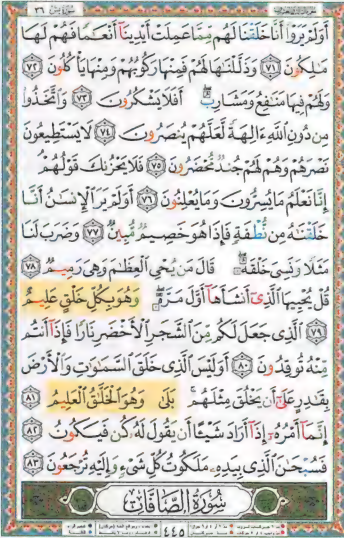 أَوَلَمْ يَرَوْا أَنَّا خَلَقْنَا لَهُم مِّمَّا عَمِلَتْ أَيْدِينَا أَنْعَـٰمًا فَهُمْ لَهَا
مَـٰلِكُونَ ﴿٧١﴾ وَذَلَّلْنَـٰهَا لَهُمْ فَمِنْهَا رَكُوبُهُمْ وَمِنْهَا يَأْكُلُونَ ﴿٧٢﴾
وَلَهُمْ فِيهَا مَنَـٰفِعُ وَمَشَارِبُ أَفَلَا يَشْكُرُونَ ﴿٧٣﴾ وَاتَّخَذُوا
مِن دُونِ اللَّهِ ءَالِهَةً لَّعَلَّهُمْ يُنصَرُونَ ﴿٧٤﴾ لَا يَسْتَطِيعُونَ
نَصْرَهُمْ وَهُمْ لَهُمْ جُندٌ مُّحْضَرُونَ ﴿٧٥﴾ فَلَا يَحْزُنكَ قَوْلُهُمْ
إِنَّا نَعْلَمُ مَا يُسِرُّونَ وَمَا يُعْلِنُونَ ﴿٧٦﴾ أَوَلَمْ يَرَ الْإِنسَـٰنُ أَنَّا
خَلَقْنَـٰهُ مِن نُّطْفَةٍ فَإِذَا هُوَ خَصِيمٌ مُّبِينٌ ﴿٧٧﴾ وَضَرَبَ لَنَا
مَثَلًا وَنَسِيَ خَلْقَهُ قَالَ مَن يُحْيِ الْعِظَـٰمَ وَهِيَ رَمِيمٌ ﴿٧٨﴾
قُلْ يُحْيِيهَا الَّذِي أَنشَأَهَا أَوَّلَ مَرَّةٍ وَهُوَ بِكُلِّ خَلْقٍ عَلِيمٌ
﴿٧٩﴾ الَّذِي جَعَلَ لَكُم مِّنَ الشَّجَرِ الْأَخْضَرِ نَارًا فَإِذَا أَنتُم
مِّنْهُ تُوقِدُونَ ﴿٨٠﴾ أَوَلَيْسَ الَّذِي خَلَقَ السَّمَـٰوَٰتِ وَالْأَرْضَ
بِقَـٰدِرٍ عَلَىٰ أَن يَخْلُقَ مِثْلَهُم بَلَىٰ وَهُوَ الْخَلَّـٰقُ الْعَلِيمُ ﴿٨١﴾
إِنَّمَا أَمْرُهُ إِذَا أَرَادَ شَيْـًٔا أَن يَقُولَ لَهُ كُن فَيَكُونُ ﴿٨٢﴾
فَسُبْحَـٰنَ الَّذِي بِيَدِهِ مَلَكُوتُ كُلِّ شَيْءٍ وَإِلَيْهِ تُرْجَعُونَ ﴿٨٣﴾
سُورَةُ الصَّافَّاتِ
٤٤٥